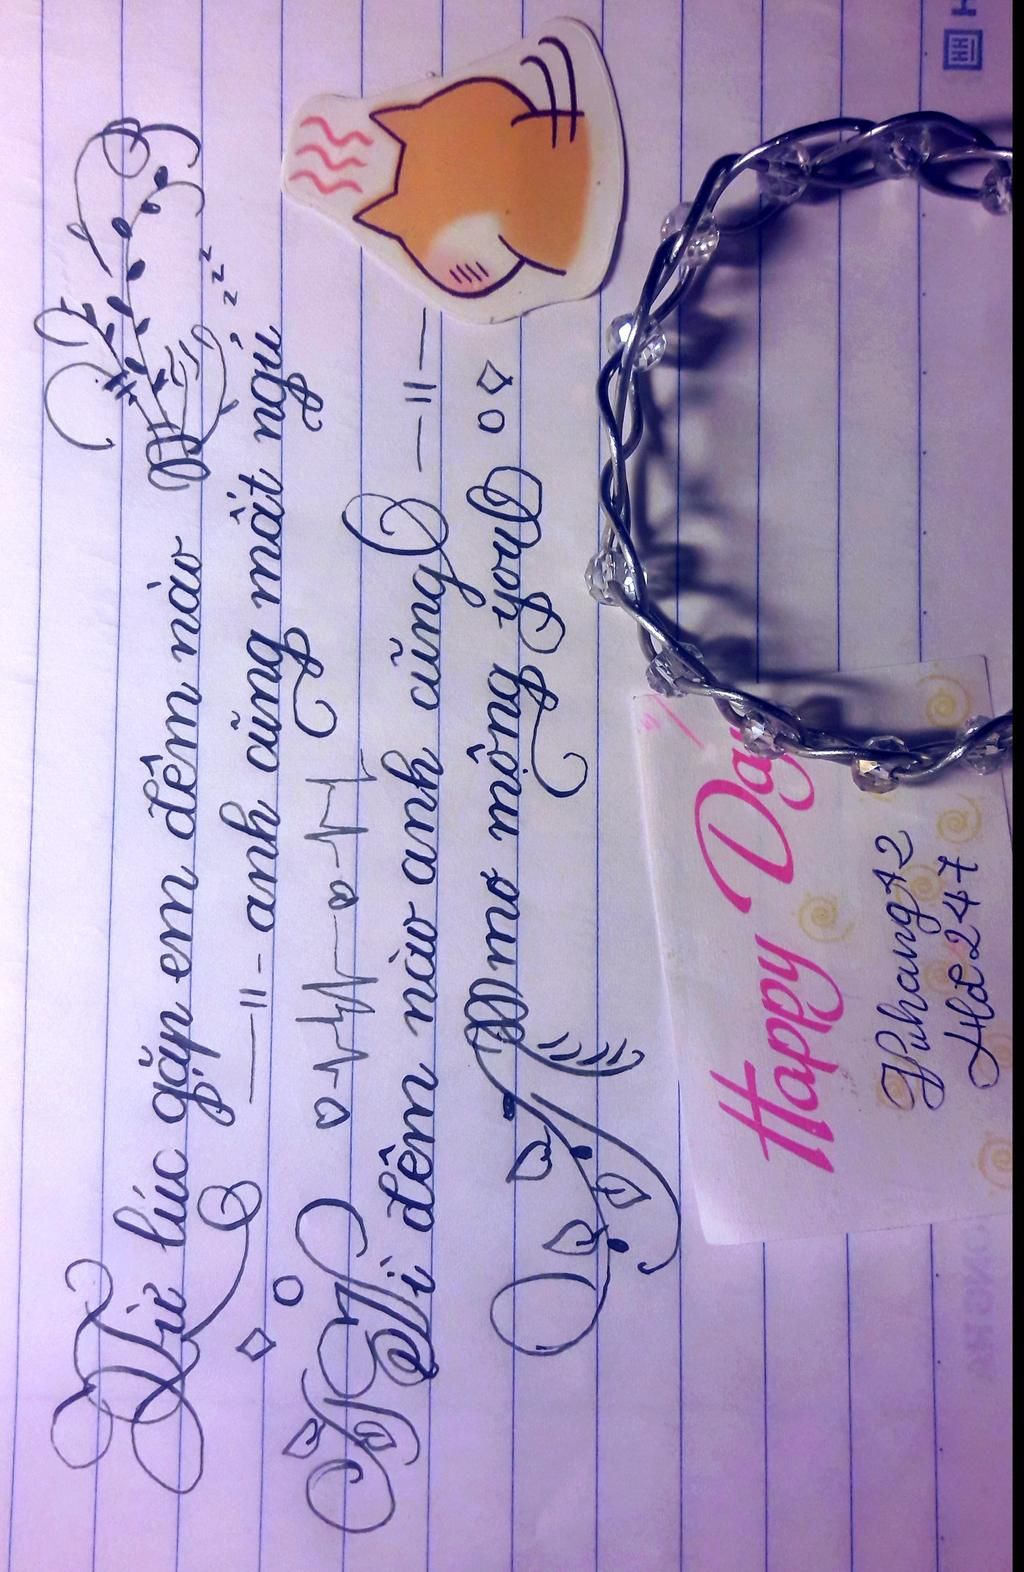 Từ lúc gặp em đêm nào
anh cũng mất ngủ, zzz
Vì đêm nào anh cũng
mơ mộng
Happy Day
A2
247
H